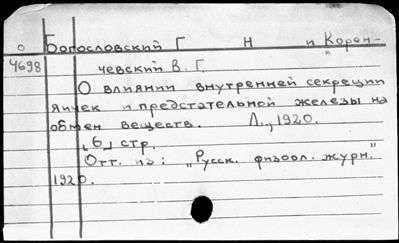 о Богословский Г Н и Корен-
4698 чевский В. Г.
О влиянии внутренней секреции
яичек и предстательной железы на
обмен веществ. Л., 1920.
[6] стр.
Отт. из: „Русск. физиол. журн."
1920.